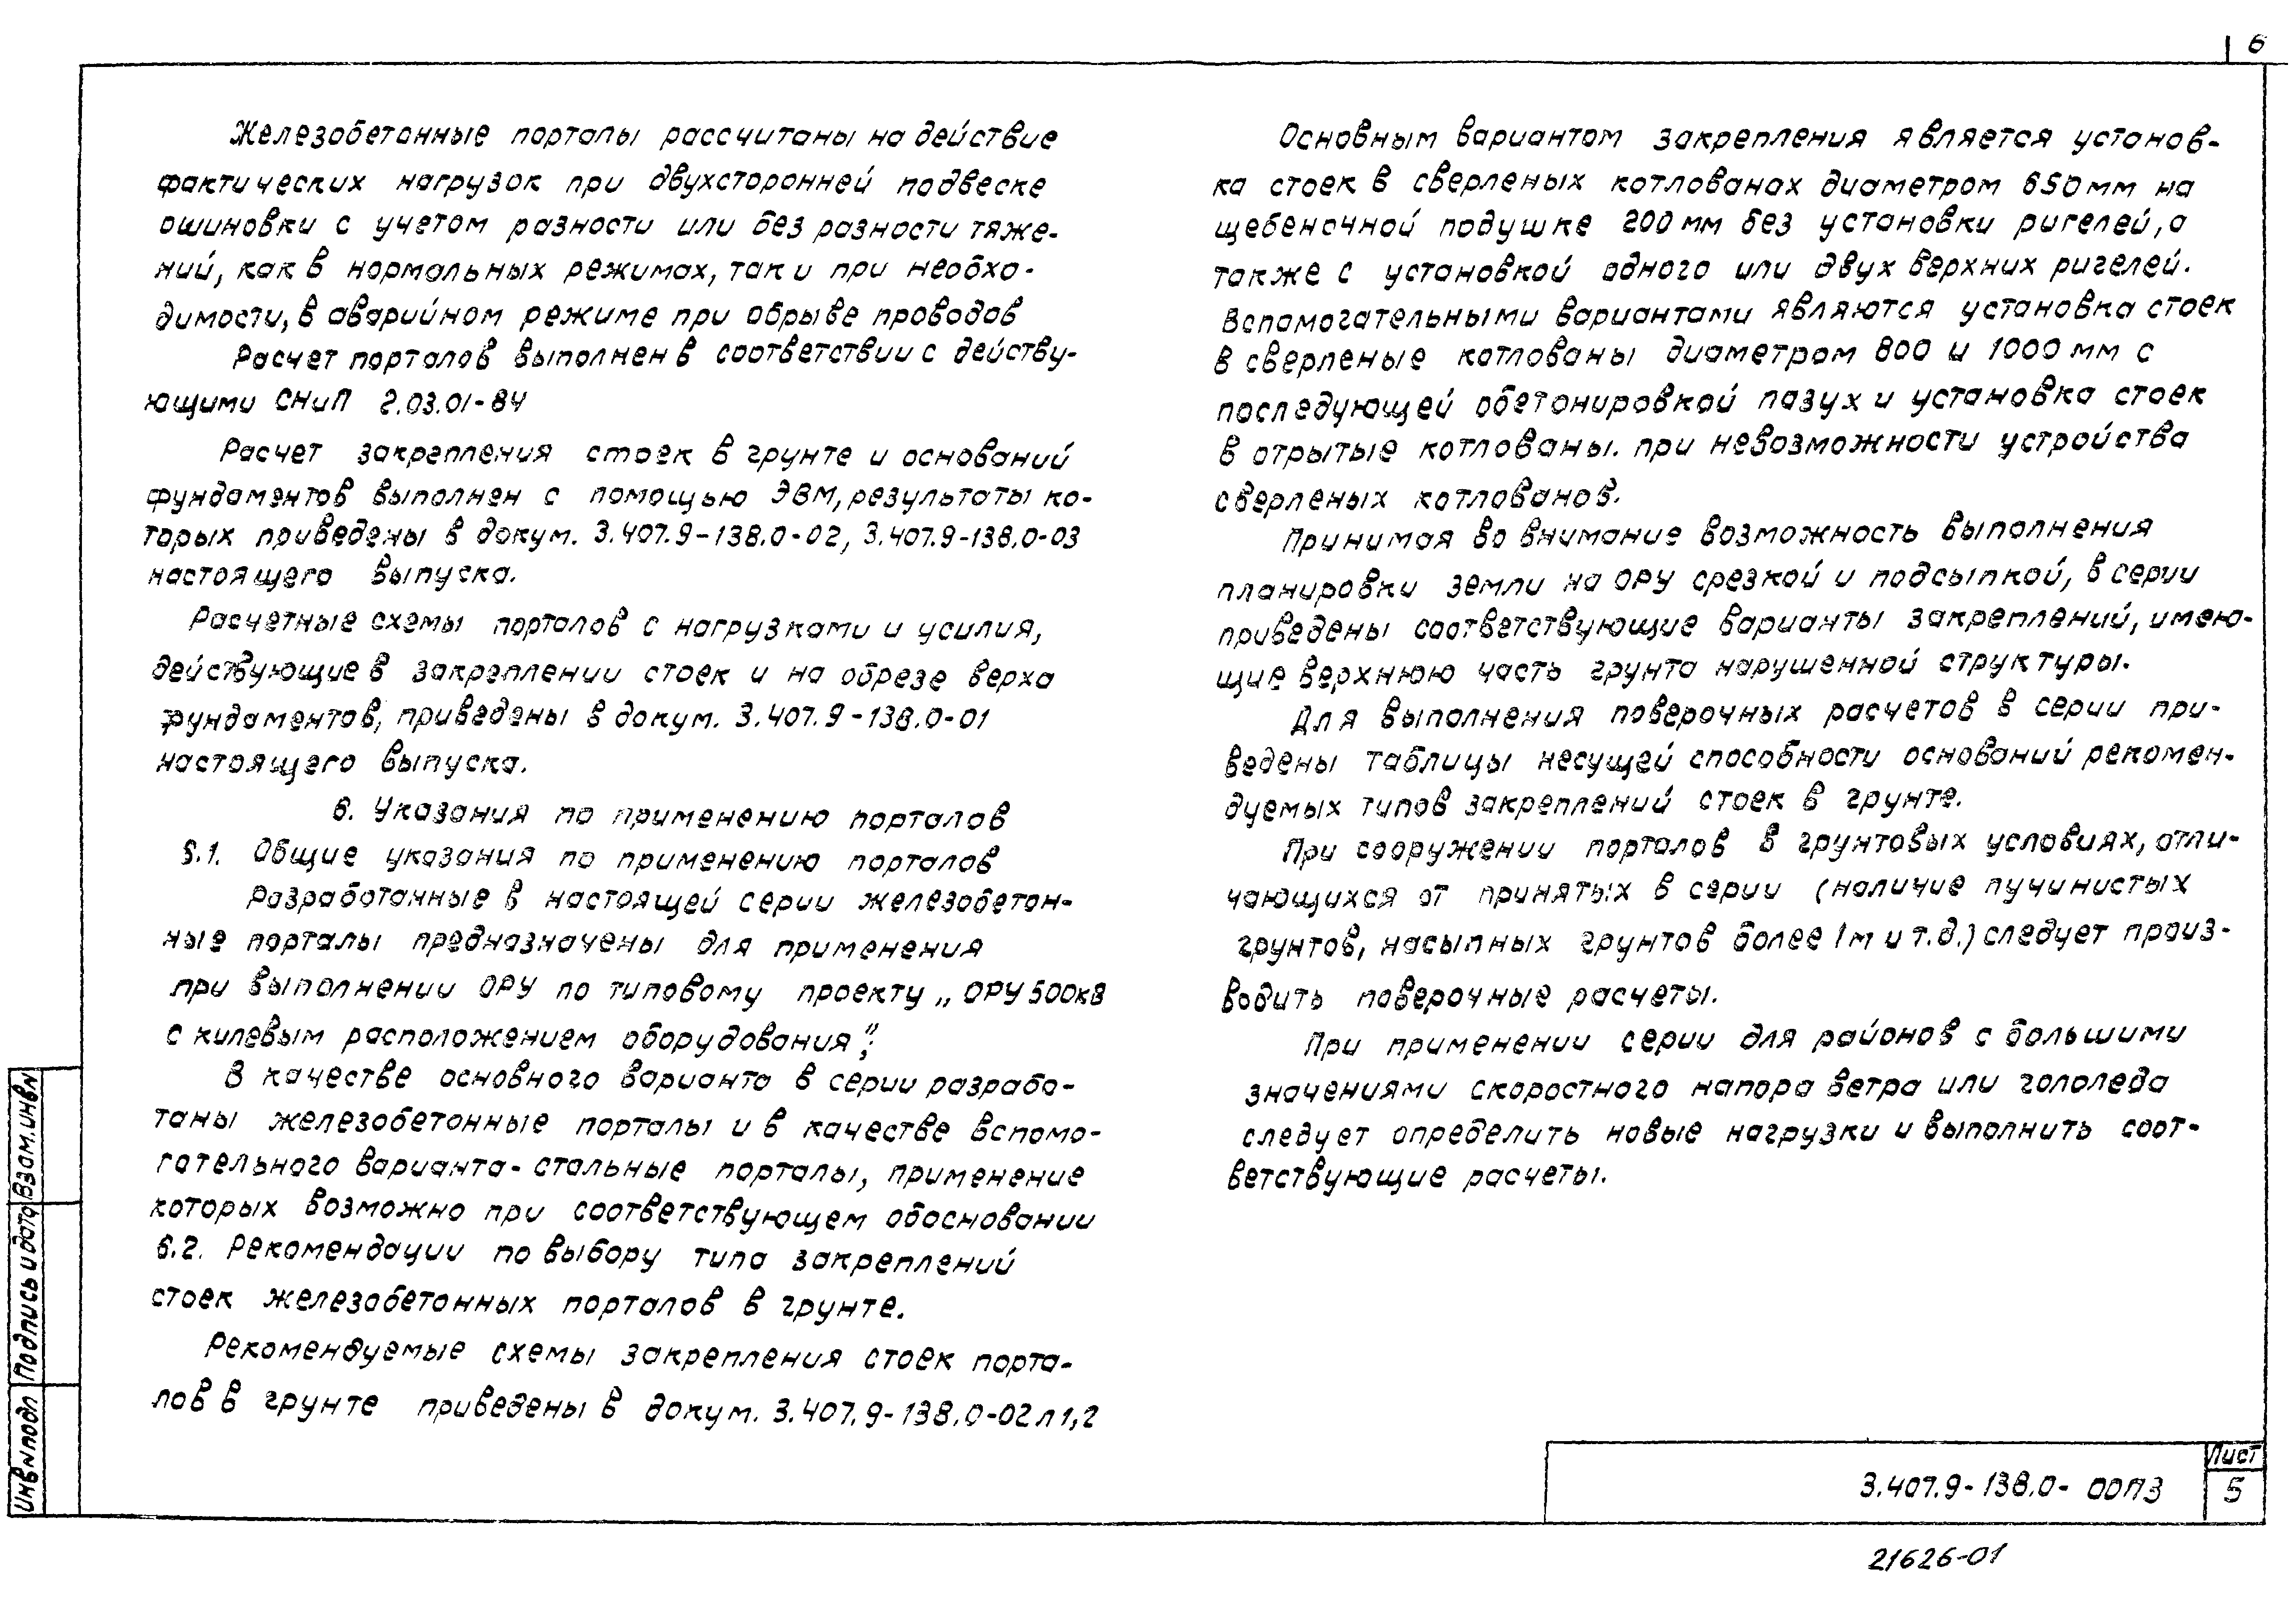 6
Железобетонные порталы рассчитаны на действие
фактических нагрузок при двухсторонней подвеске
ошиновки с учетом разности или без разности тяже-
ний, как в нормальных режимах, так и при необхо-
димости, в аварийном режиме при обрыве проводов
Расчет порталов выполнен в соответствии с действу-
ющими СНиП 2.03.01-84
Расчет закрепления стоек в грунте и оснований
фундаментов выполнен с помощью ЭВМ, результаты ко-
торых приведены в докум. 3.407.9-138.0-02, 3.407.9-138.0-03
настоящего выпуска.
Расчетные схемы порталов с нагрузками и усилия,
действующие в закреплении стоек и на обрезе верха
фундаментов, приведены в докум. 3.407.9-138.0-01
настоящего выпуска.
6. Указания по применению порталов
6.1. Общие указания по применению порталов
Разработанные в настоящей серии железобетон-
ные порталы предназначены для применения
при выполнении ОРУ по типовому проекту „ ОРУ 500кВ
с килевым расположением оборудования";
В качестве основного варианта в серии разрабо-
таны железобетонные порталы и в качестве вспомо-
гательного варианта - стальные порталы, применение
которых возможно при соответствующем обосновании
6.2. Рекомендации по выбору типа закреплений
стоек железобетонных порталов в грунте.
Рекомендуемые схемы закрепления стоек порта-
лов в грунте приведены в докум. 3.407.9-138.0-02 л 1,2
Основным вариантом закрепления является установ-
ка стоек в сверленых котлованах диаметром 650 мм на
щебеночной подушке 200 мм без установки ригелей, а
также с установкой одного или двух верхних ригелей.
Вспомогательными вариантами являются установка стоек
в сверленые котлованы диаметром 800 и 1000 мм с
последующей обетонировкой пазух и установка стоек
в отрытые котлованы. при невозможности устройства
сверленых котлованов.
Принимая во внимание возможность выполнения
планировки земли на ОРУ срезкой и подсыпкой, в серии
приведены соответствующие варианты закреплений, имею-
щие верхнюю часть грунта нарушенной структуры.
Для выполнения поверочных расчетов в серии при-
ведены таблицы несущей способности оснований рекомен-
дуемых типов закреплений стоек в грунте.
При сооружении порталов в грунтовых условиях, отли-
чающихся от принятых в серии (наличие пучинистых
грунтов, насыпных грунтов более 1м и т.д.) следует произ-
водить поверочные расчеты.
При применении серии для районов с большими
значениями скоростного напора ветра или гололеда
следует определить новые нагрузки и выполнить соот-
ветствующие расчеты.
Взам.инв.N
Подпись и дата
Инв.N подл
3.407.9-138.0- 00ПЗ
Лист
5
21626-01